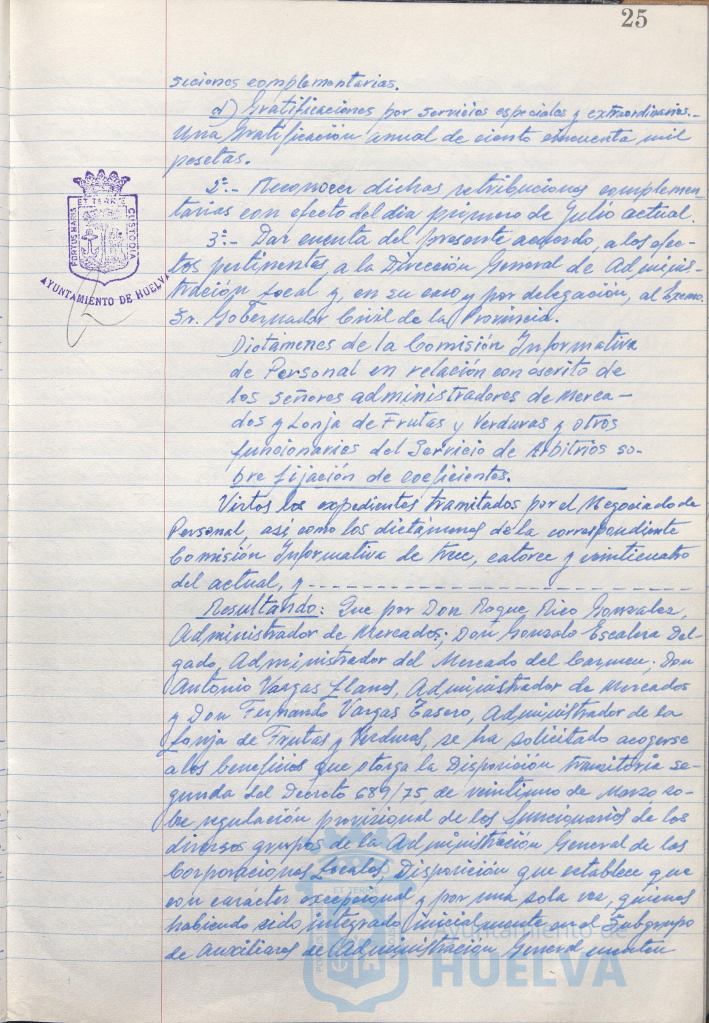 25
siciones complementarias.
d) Gratificaciones por servicios especiales y extraordinarios.-
Una Gratificación anual de ciento cincuenta mil
pesetas.
2º.- Reconocer dichas retribuciones complemen-
tarias con efecto del día primero de Julio actual.
3º.- Dar cuenta del presente acuerdo, a los efec-
tos pertinentes, a la Dirección General de Adminis-
tración Local y, en su caso y por delegación, al Excmo.
Sr. Gobernador Civil de la Provincia.
PORTUS MARIS ET TERRE CUSTODIA
AYUNTAMIENTO DE HUELVA
Dictámenes de la Comisión Informativa
de Personal en relación con escrito de
los señores administradores de Merca-
dos y Lonja de Frutas y Verduras y otros
funcionarios del Servicio de Arbitrios so-
bre fijación de coeficientes.
Vistos los expedientes tramitados por el Negociado de
Personal, así como los dictámenes de la correspondiente
Comisión Informativa de trece, catorce y veinticuatro
del actual, y
Resultando: Que por Don Roque Rico Gonzalez,
Administrador de Mercados; Don Gonzalo Escalera Del-
gado, Administrador del Mercado del Carmen; Don
Antonio Vargas Llanos, Administrador de Mercados
y Don Fernando Vargas Tasero, Administrador de la
Lonja de Frutas y Verduras, se ha solicitado acogerse
a los beneficios que otorga la Disposición transitoria se-
gunda del Decreto 689/75 de veintiuno de Marzo so-
bre regulación provisional de los funcionarios de los
diversos grupos de la Administración General de las
Corporaciones Locales, Disposición que establece que
con carácter excepcional y por una sola vez, quienes
habiendo sido integrado inicialmente en el Subgrupo
de Auxiliares de Administración General cuenten
Ayuntamiento
HUELVA